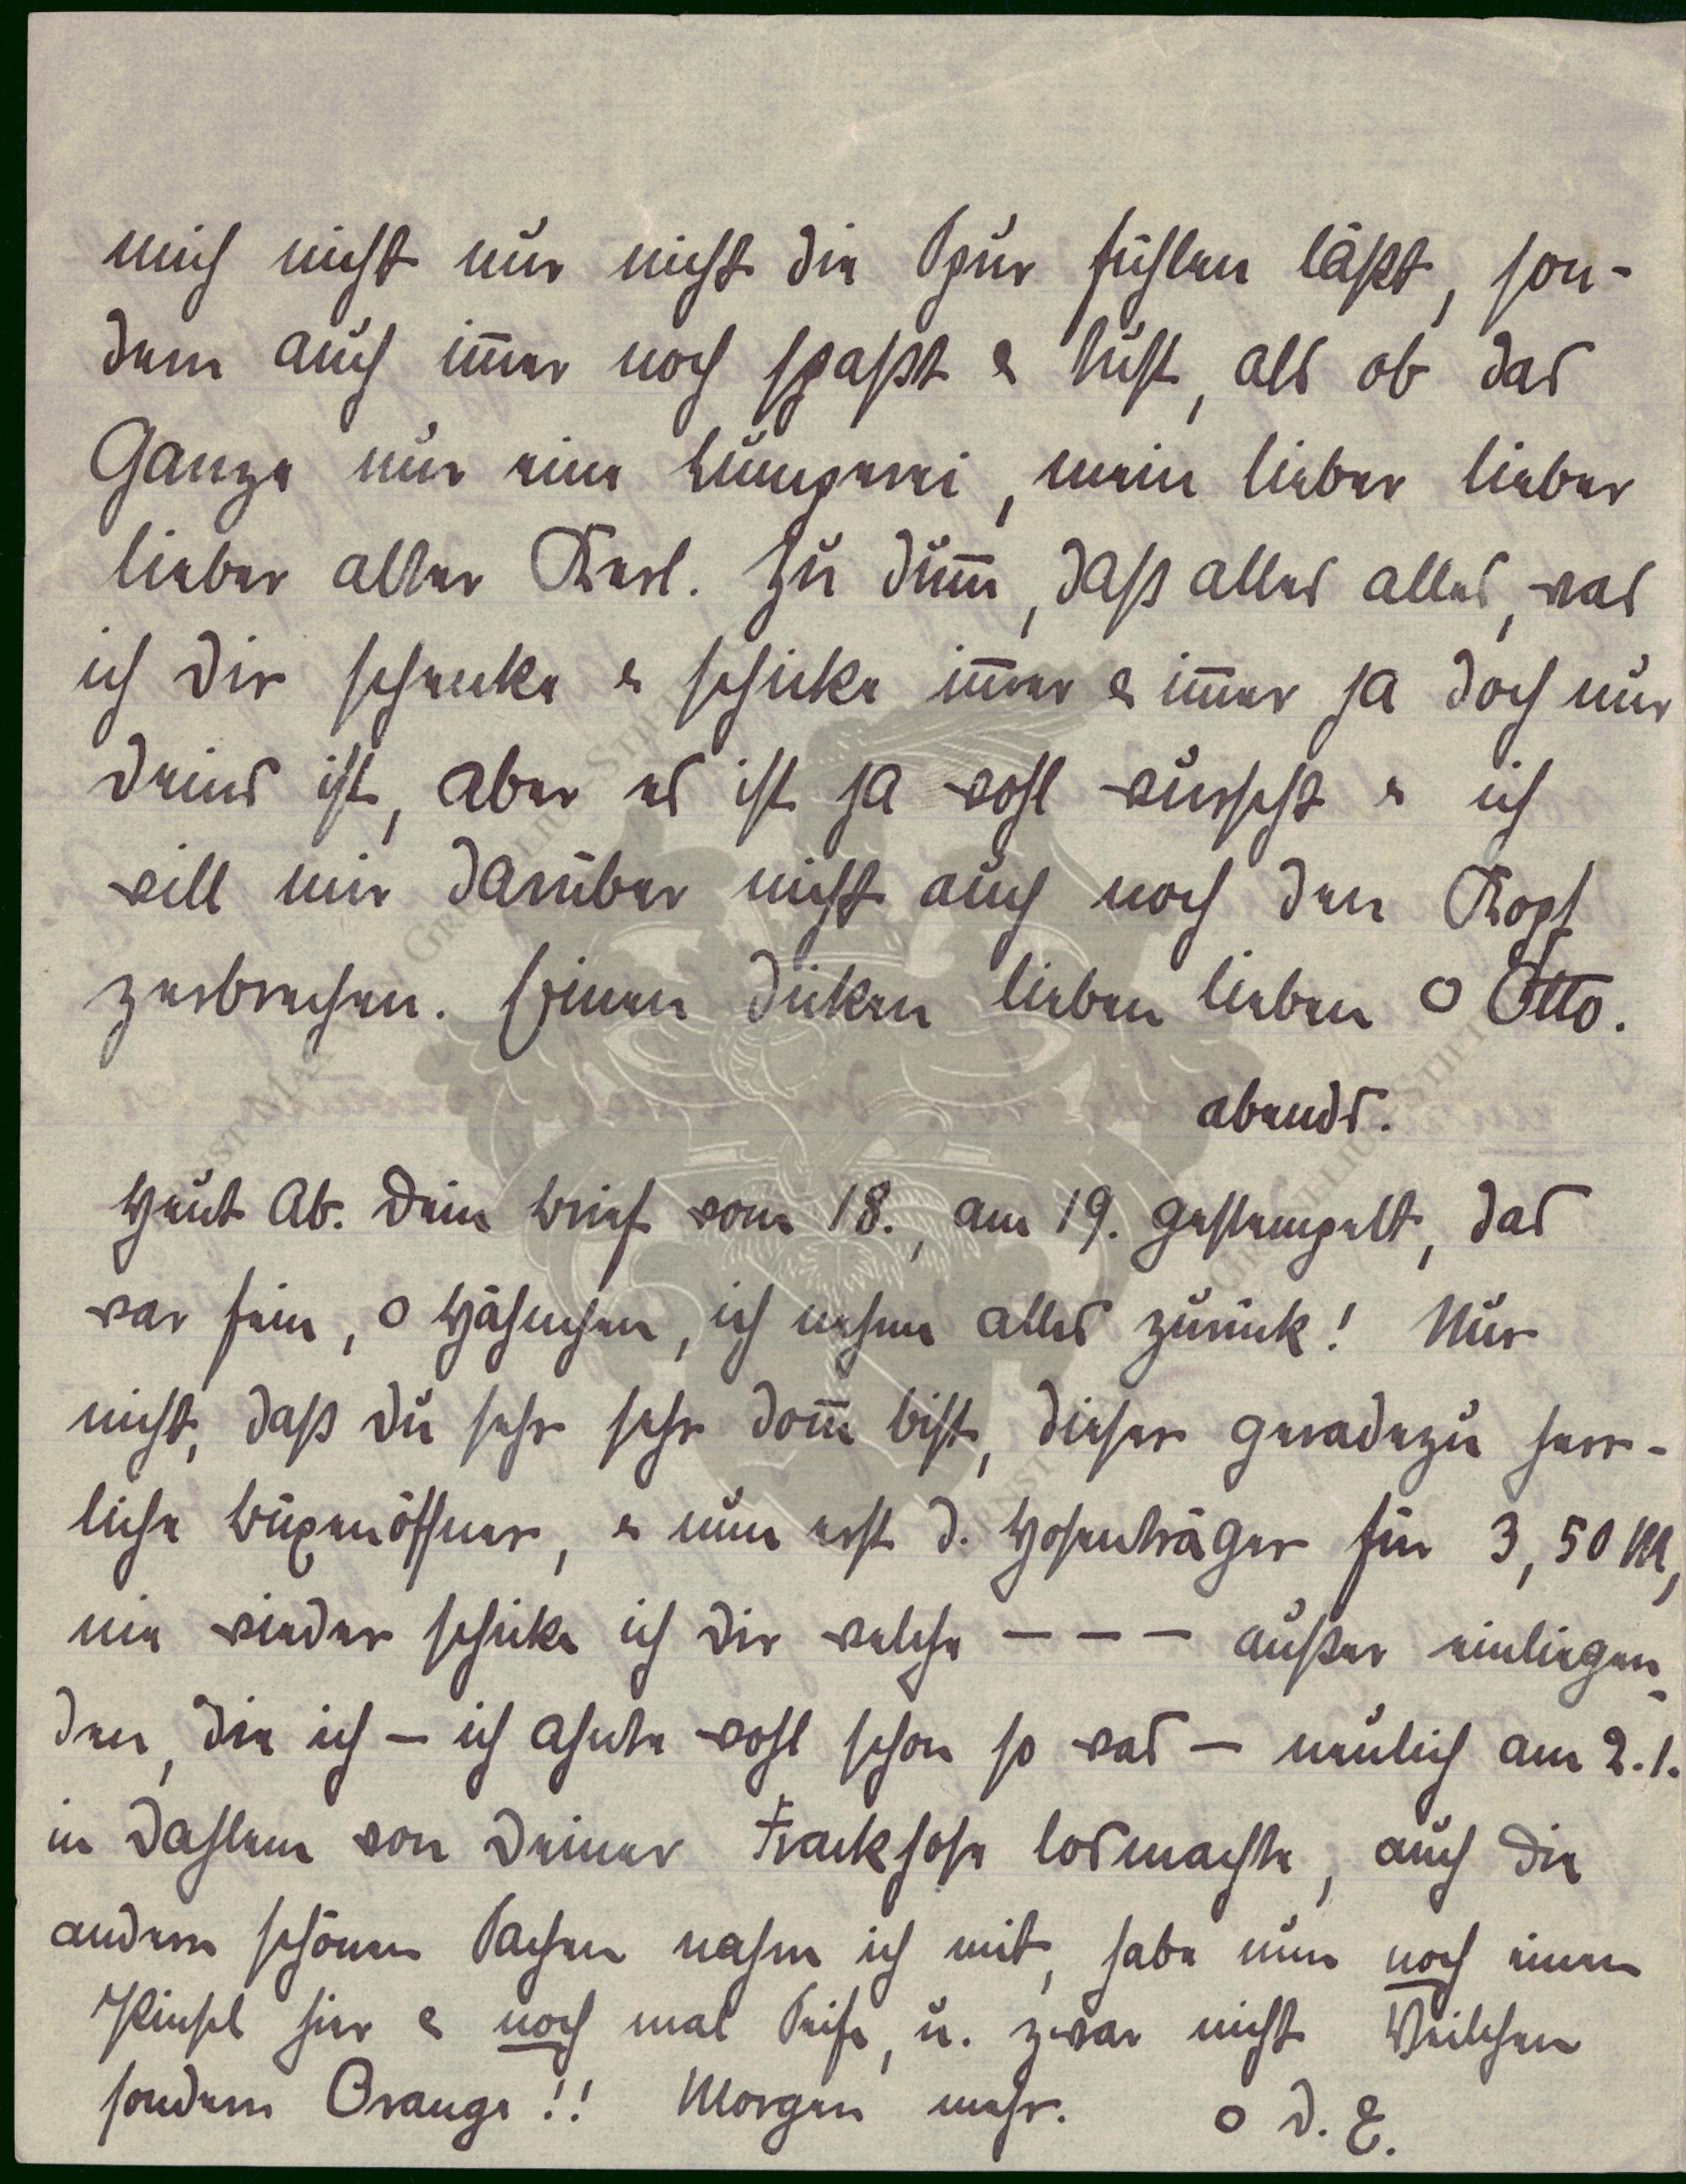 mich nicht nur nicht die Spur fühlen läßt, son-
dern auch im̄er noch spaßt & tust, als ob das
Ganze nur eine Lumperei, mein lieber lieber
lieber alter Kerl. Zu dum̄, daß alles alles, was
ich Dir schenke & schicke im̄er & im̄er ja doch nur
Deins ist, aber es ist ja wohl wurscht & ich
will mir darüber nicht auch noch den Kopf
zerbrechen. Einen dicken lieben lieben O Otto.
abends.
Heut Ab. Dein Brief vom 18., am 19. gestempelt, das
war fein, o Hähnchen, ich nehme alles zurück! Nur
nicht, daß Du sehr sehr dom̄ bist, dieser geradezu herr-
liche Büxenöffner, & nun erst d. Hosenträger für 3,50 M,
nie wieder schicke ich Dir welche – – – außer einliegen-
den, die ich – ich ahnte wohl schon so was – neulich am 2.1.
in Dahlem von Deiner Frackhose losmachte, auch die
andern schönen Sachen nahm ich mit, habe nun noch einen
Pinsel hier & noch mal Seife, u. zwar nicht Veilchen
sondern Orange!! Morgen mehr. O D. E.
ERNST MA
GRÄFLICH
STIFT